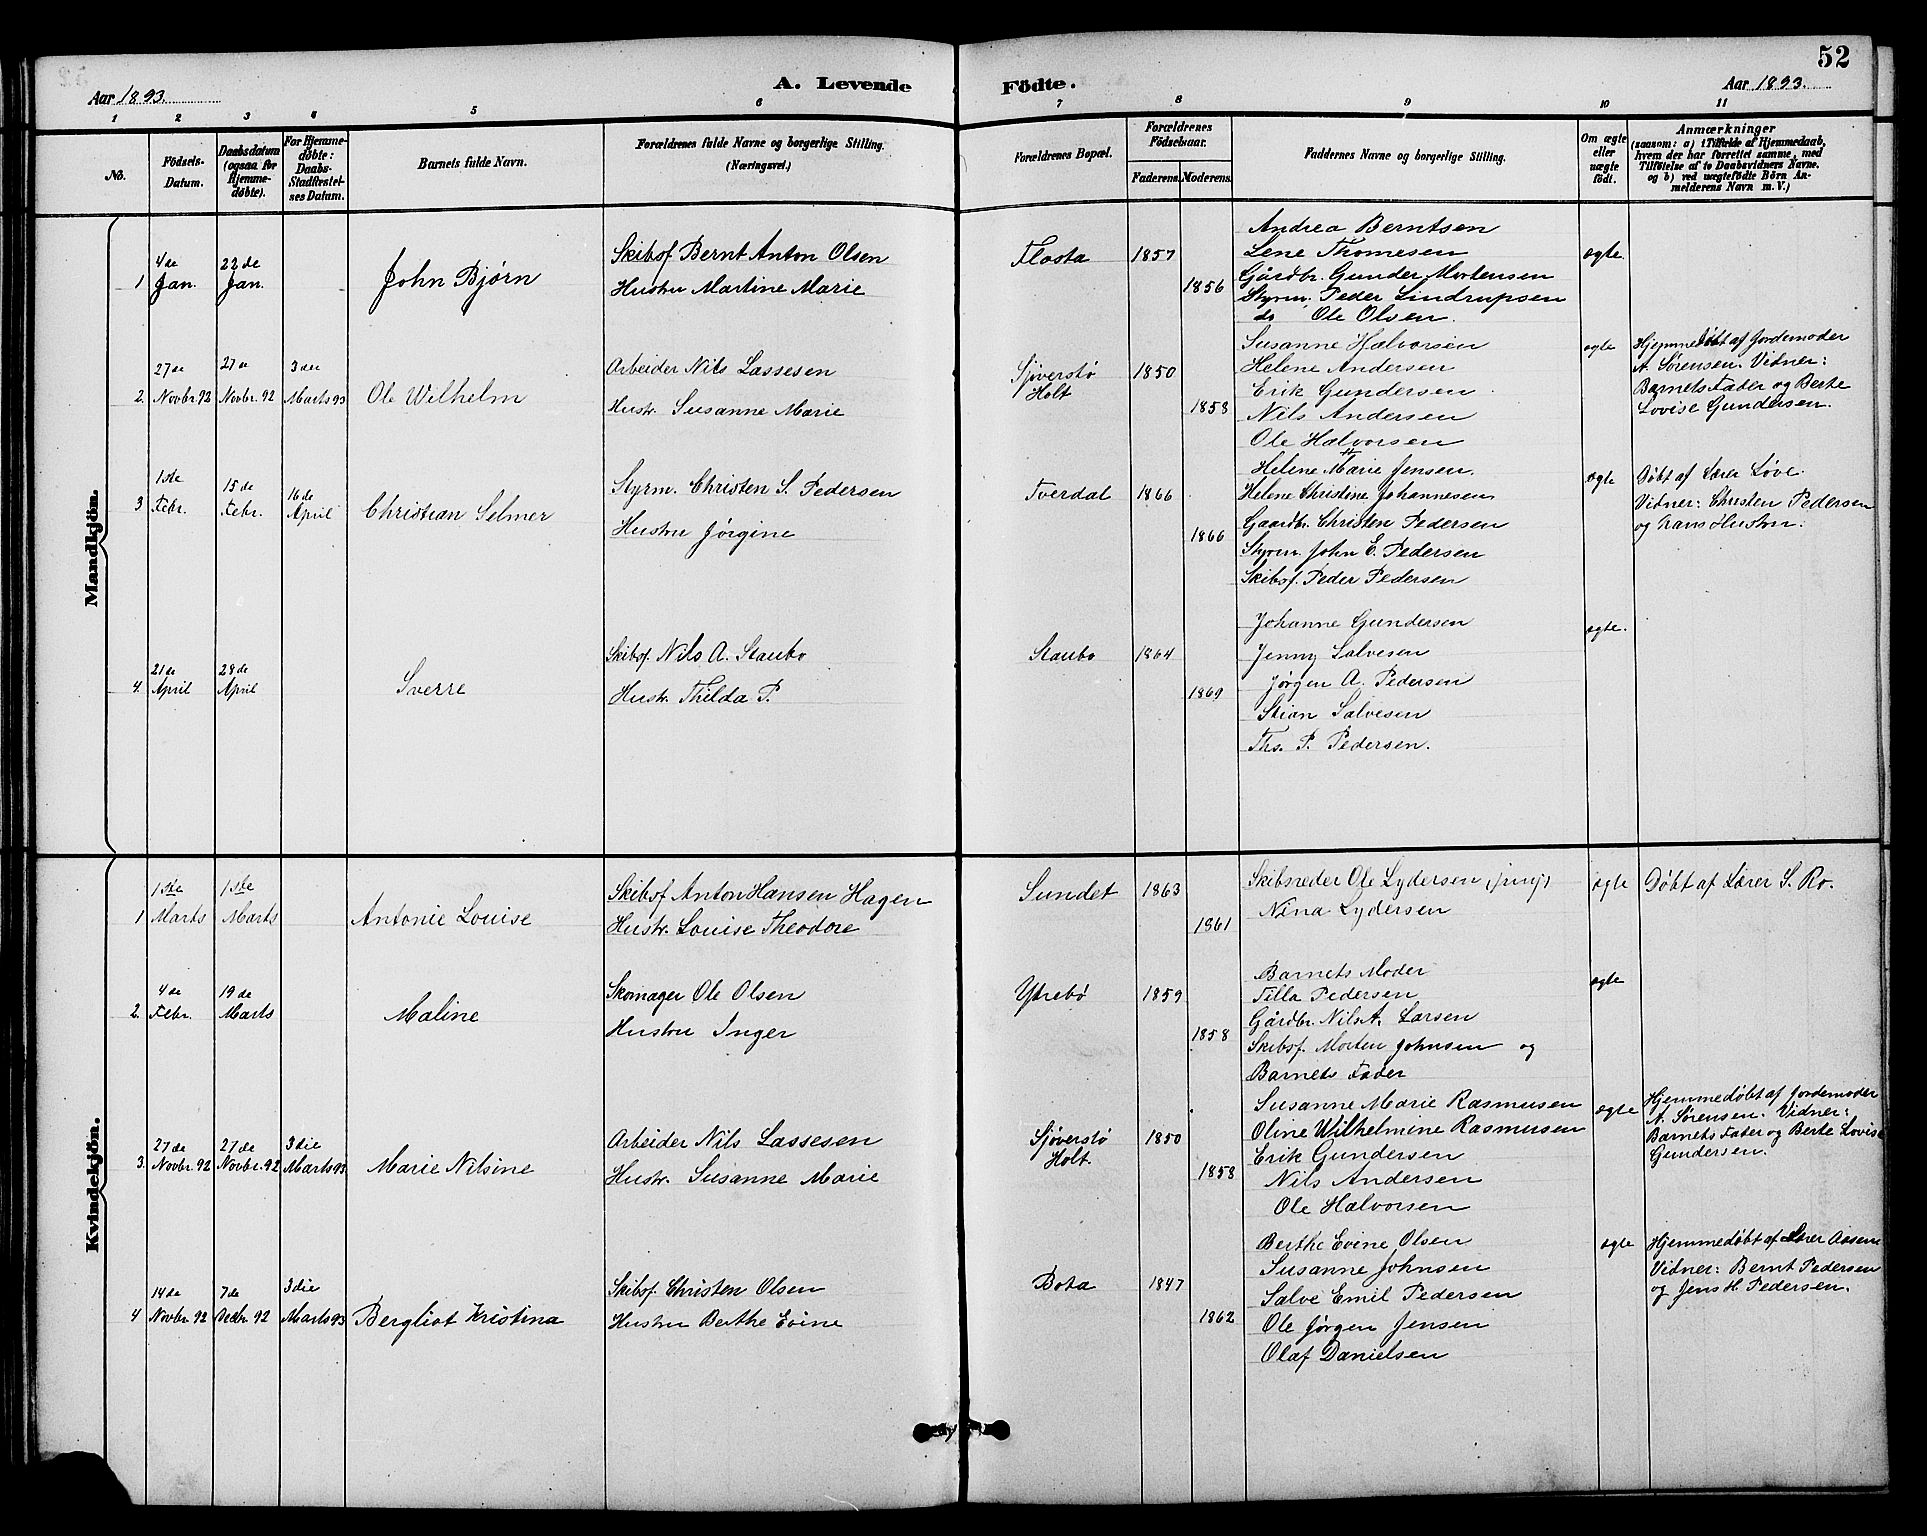 52
Aar 1893.
A. Levende
Födte.
Aar 1893.
1 2 3 4 5 6 7 8 9 10 11
No.
Födsels-
Datum.
Daabsdatum
(ogsaa for
Hjemme-
døbte).
For Hjemme-
døbte:
Daabs-
Stadfæstel-
ses Datum.
Barnets fulde Navn.
Forældrenes fulde Navne og borgerlige Stilling.
(Næringsvei.)
Forældrenes Bopæl.
Forældrenes
Födselsaar.
Faderens.
Moderens.
Faddernes Navne og borgerlige Stilling.
Om ægte
eller
uægte
født.
Anmærkninger
(saasom: a) i Tilfælde af Hjemmedaab,
hvem der har forrettet samme, med
Tilføielse af to Daabsvidners Navne.
og b) ved uægtefødte Börn An-
melderens Navn m. V.)
Mandkjön.
1
4de
Jan.
22de
Jan.
John Bjørn
Skibsf. Bernt Anton Olsen
Hustru Martine Marie
Flosta
1857
1856
Andrea Berntsen
Lene Thomesen
Gårdbr. Gunder Mortensen
Styrm. Peder Lindrupsen
do Ole Olsen.
ægte.
2.
27de
Novbr. 92
27de
Novbr. 92
3die
Marts 93
Ole Wilhelm
Arbeider Nils Lassesen
Hustr. Susanne Marie
Sjøverstø
Holt
1850
1858
Susanne Halvorsen
Helene Andersen
Erik Gundersen
Nils Andersen
Ole Halvorsen
ægte
Hjemmedøbt af Jordemoder
A. Sørensen. Vidner:
Barnets Fader og Berte
Lovise Gundersen.
3
1ste
Febr.
15de
Febr.
16de
April
Christian Selmer
Styrm. Christen S. Pedersen
Hustru Jørgine
Tverdal
1866
1866
Helene Marie Jensen.
Helene Christine Johannesen
Gaardbr. Christen Pedersen
Styrm. John E. Pedersen
Skibsf. Peder Pedersen
ægte
Døbt af Lærer Løve.
Vidner: Christen Pedersen
og hans Hustru.
4.
21de
April
28de
April
Sverre
Skibsf. Nils A. Staubo
Hustr. Thilda P.
Staubo
1864
1869
Johanne Gundersen
Jenny Salvesen
Jørgen A. Pedersen
Stian Salvesen
Ths. P. Pedersen.
ægte.
Kvindekjön.
1
1ste
Marts
1ste
Marts
Antonie Louise
Skibsf. Anton Hansen Hagen
Hustr. Louise Theodore
Sundet
1863
1861
Skibsreder Ole Lydersen (jun.)
Nina Lydersen
ægte
Døbt af Lærer S. Ro.
2.
4de
Febr.
19de
Marts
Maline
Skomager Ole Olsen
Hustru Inger
Ytrebø
1859
1858
Barnets Moder
Tilla Pedersen
Gårdbr. Nils A. Larsen
Skibsf. Morten Johnsen og
Barnets Fader
ægte
3.
27de
Novbr. 92
27de
Novbr. 92
3die
Marts 93
Marie Nilsine
Arbeider Nils Lassesen
Hustr. Susanne Marie
Sjøverstø
Holt.
1850
1858
Susanne Marie Rasmusen
Oline Wilhelmine Rasmusen
Erik Gundersen
Nils Andersen
Ole Halvorsen
ægte
Hjemmedøbt af Jordemoder
A. Sørensen. Vidner:
Barnets Fader og Berte Lovise
Gundersen.
4
14de
Novbr. 92
7de
Decbr. 92
3die
Marts 93
Bergliot Kristina
Skibsf. Christen Olsen
Hustru Berthe Evine
Bota
1847
1862
Berthe Evine Olsen
Susanne Johnsen
Salve Emil Pedersen
Ole Jørgen Jensen
Olaf Danielsen
ægte
Hjemmedøbt af Lærer Aasene
Vidner: Bernt Pedersen
og Jens H. Pedersen.